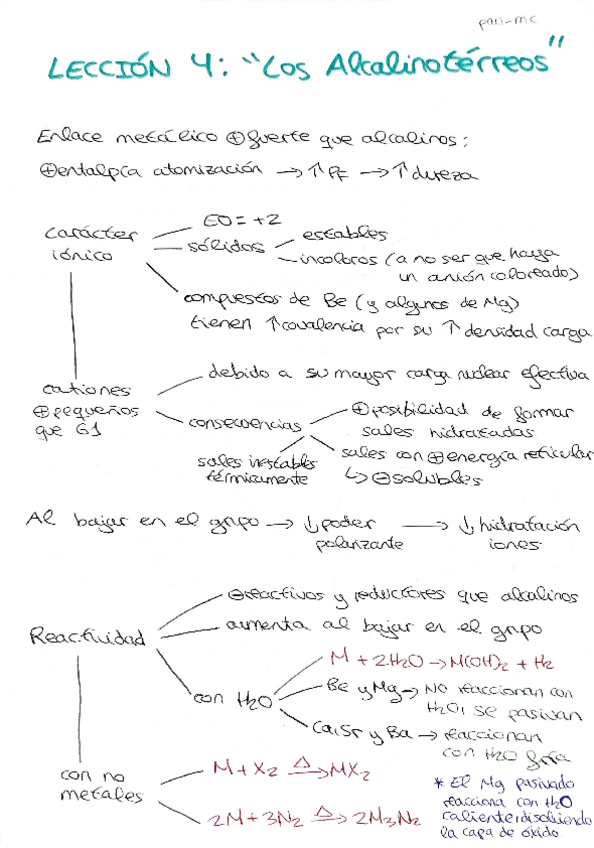 pau-mc
LECCIÓN 4: "Los Alcalinotérreos"
Enlace metálico ⊕fuerte que alcalinos:
⊕entalpía atomización → ↑PF → ↑dureza
carácter
iónico
EO = +2
sólidos
estables
incoloros (a no ser que haya
un anión coloreado)
compuestos de Be (y algunos de Mg)
tienen ↑covalencia por su ↑densidad carga
cationes
⊕pequeños
que G1
debido a su mayor carga nuclear efectiva
consecuencias
⊕posibilidad de formar
sales hidratadas
sales con ⊕energía reticular
↳ ⊖solubles
sales inestables
térmicamente
Al bajar en el grupo → ↓poder
polarizante
→ ↓hidratación
iones
Reactividad
⊖reactivos y reductores que alcalinos
aumenta al bajar en el grupo
con H2O
M + 2H2O → M(OH)2 + H2
Be y Mg → NO reaccionan con
H2O, se pasivan
Ca, Sr y Ba → reaccionan
con H2O fría
con no
metales
M + X2 —Δ→ MX2
2M + 3N2 —Δ→ 2M3N2
* El Mg pasivado
reacciona con H2O
caliente, disolviendo
la capa de óxido